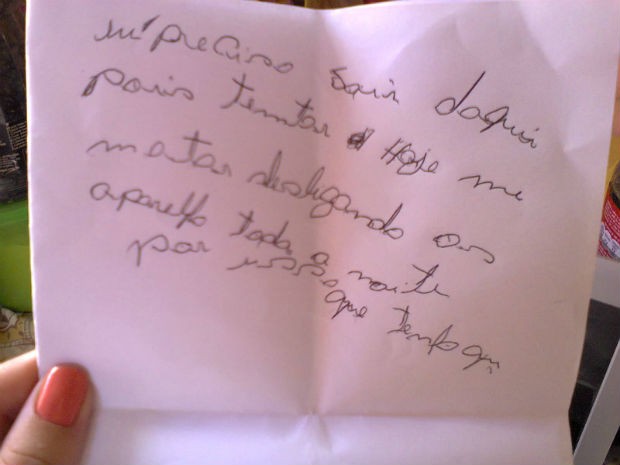 preciso sair daqui
pois tentar Hoje me
matar desligando os
aparelho toda a noite
por isso que tenho qui